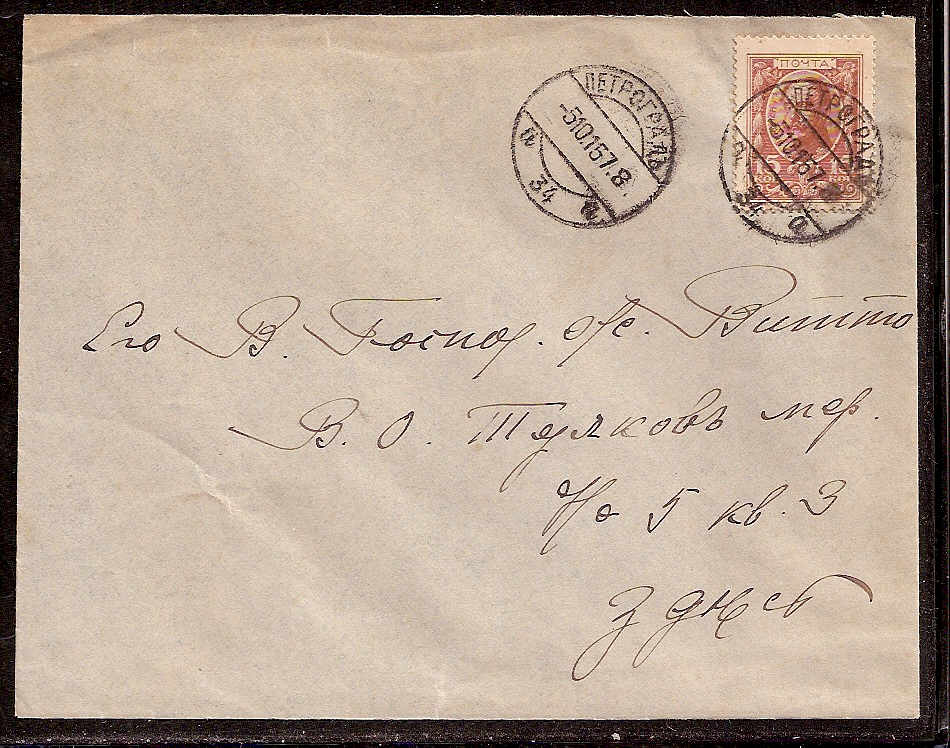 ПОЧТА
15 15
КОП КОП
ПЕТРОГРАДЪ
-510.15 7.8
34
а
ПЕТРОГРАДЪ
-510.15 7
34
а
Его В. Господ. Витто
В. О. Тучковъ пер.
No 5 кв. 3
здѣсь